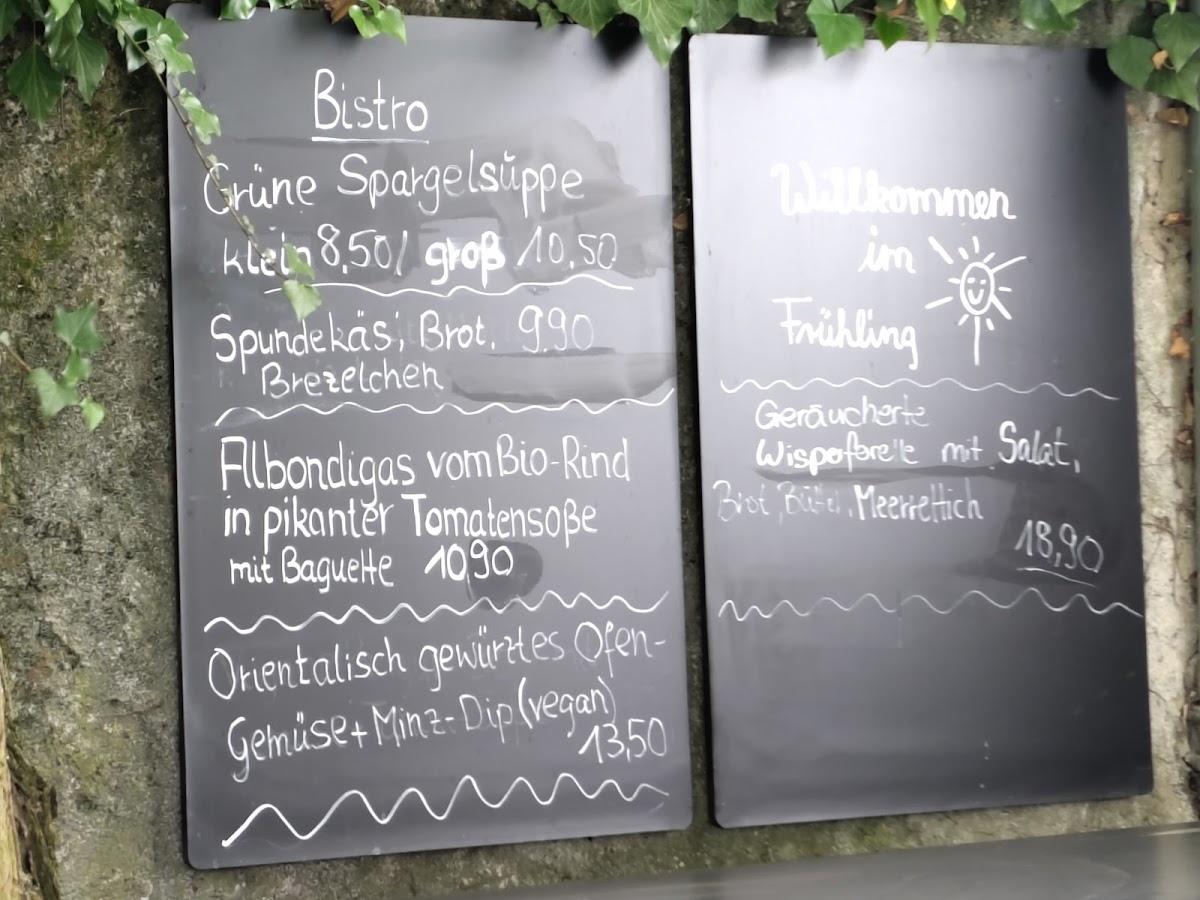 Bistro
Grüne Spargelsuppe
klein 8,50/ groß 10,50
Spundekäs, Brot, 9.90
Brezelchen
Albondigas vom Bio-Rind
in pikanter Tomatensoße
mit Baguette 10,90
Orientalisch gewürztes Ofen-
Gemüse + Minz-Dip (vegan)
13,50
Willkommen
im
Frühling
Geräucherte
Wisperforelle mit Salat,
Brot, Butter, Meerrettich
18,90